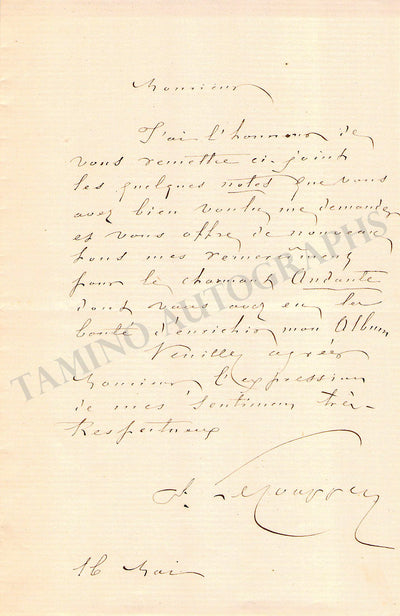 Monsieur
J'ai l'honneur de
vous remettre ci-joint
les quelques notes que vous
avez bien voulu me demander
et vous offre de nouveau
tous mes remerciments
pour le charmant Andante
dont vous avez eu la
bonté d'enrichir mon Album
Veuillez agréer
Monsieur l'expression
de mes sentimens très-
Respectueux
16 Mai
TAMINO AUTOGRAPHS